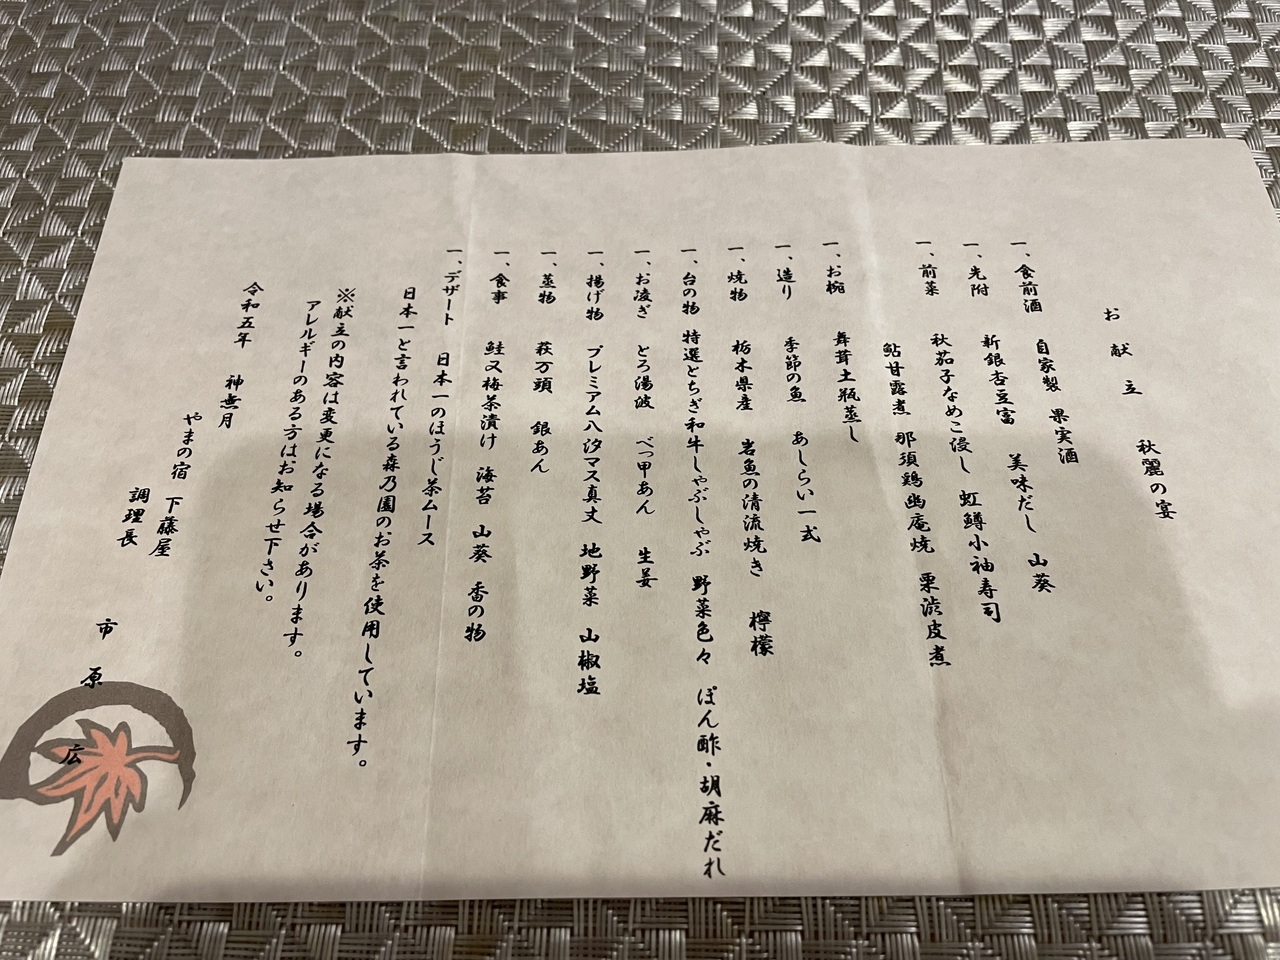 お献立　秋麗の宴
一、食前酒　自家製　果実酒
一、先附　新銀杏豆富　美味だし　山葵
一、前菜　秋茄子なめこ浸し　虹鱒小袖寿司
鮎甘露煮　那須鶏幽庵焼　栗渋皮煮
一、お椀　舞茸土瓶蒸し
一、造り　季節の魚　あしらい一式
一、焼物　栃木県産　岩魚の清流焼き　檸檬
一、台の物　特選とちぎ和牛しゃぶしゃぶ　野菜色々　ぽん酢・胡麻だれ
一、お凌ぎ　とろ湯波　べっ甲あん　生姜
一、揚げ物　プレミアム八汐マス真丈　地野菜　山椒塩
一、蒸物　萩万頭　銀あん
一、食事　鮭又梅茶漬け　海苔　山葵　香の物
一、デザート　日本一のほうじ茶ムース
日本一と言われている森乃園のお茶を使用しています。
※献立の内容は変更になる場合があります。
アレルギーのある方はお知らせ下さい。
令和五年　神無月
やまの宿　下藤屋
調理長　市原　広